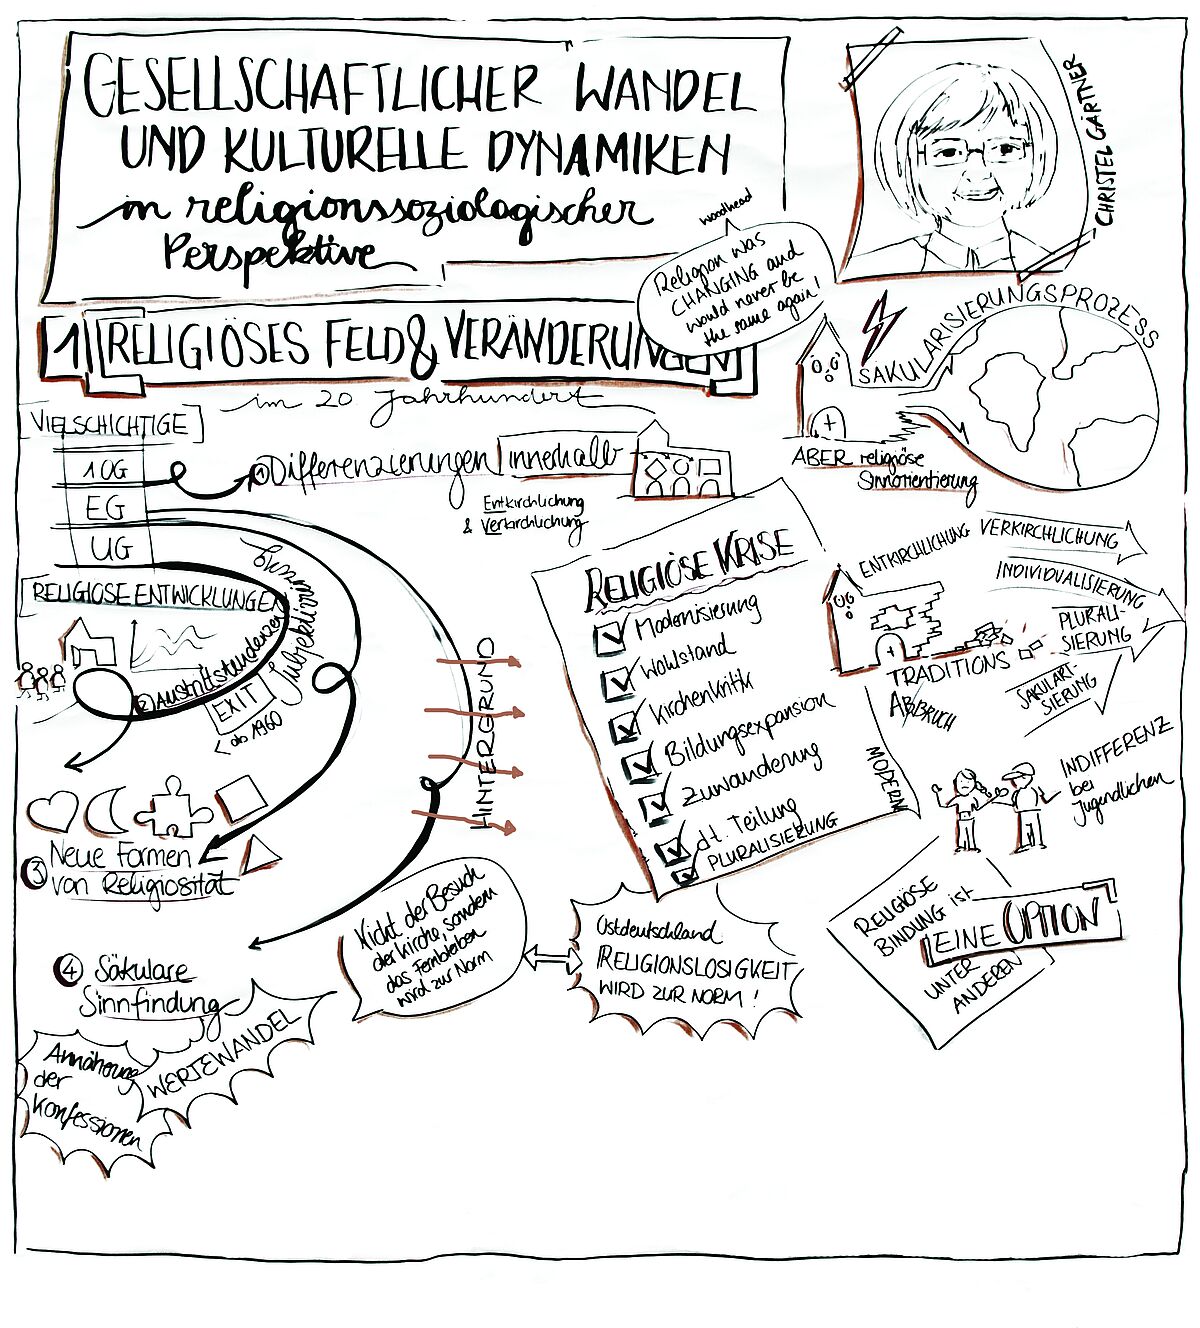 GESELLSCHAFTLICHER WANDEL
UND KULTURELLE DYNAMIKEN
in religionssoziologischer
Perspektive
CHRISTEL GÄRTNER
Woodhead
Religion was
CHANGING and
would never be
the same again!
1 RELIGIÖSES FELD & VERÄNDERUNGEN
im 20 Jahrhundert
SÄKULARISIERUNGSPROZESS
ABER religiöse
Sinnorientierung
VIELSCHICHTIGE
1 OG
EG
UG
RELIGIÖSE ENTWICKLUNGEN
① Differenzierungen innerhalb
Entkirchlichung
& Verkirchlichung
② Austrittstendenzen
EXIT
< ab 1960
Subjektivierung
③ Neue Formen
von Religiosität
④ Säkulare
Sinnfindung
WERTEWANDEL
Annäherung
der
Konfessionen
HINTERGRUND
RELIGIÖSE KRISE
Modernisierung
Wohlstand
Kirchenkritik
Bildungsexpansion
Zuwanderung
dt. Teilung
PLURALISIERUNG
MODERN
Nicht der Besuch
der Kirche, sondern
das Fernbleiben
wird zur Norm
Ostdeutschland
RELIGIONSLOSIGKEIT
WIRD ZUR NORM!
ENTKIRCHLICHUNG
VERKIRCHLICHUNG
INDIVIDUALISIERUNG
PLURALI-
SIERUNG
SÄKULARI-
SIERUNG
TRADITIONS
ABBRUCH
INDIFFERENZ
bei
Jugendlichen
RELIGIÖSE
BINDUNG ist
EINE OPTION
UNTER
ANDEREN